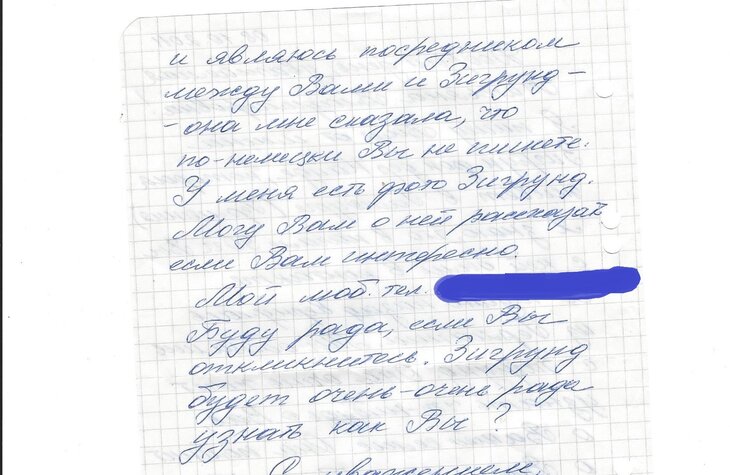 и являюсь посредником
между Вами и Зигрунд -
- она мне сказала, что
по-немецки Вы не пишете.
У меня есть фото Зигрунд.
Могу Вам о ней рассказат
если Вам интересно.
Мой моб. тел.
Буду рада, если Вы
откликнитесь. Зигрунд
будет очень-очень рада
узнать как Вы?
С уважением,